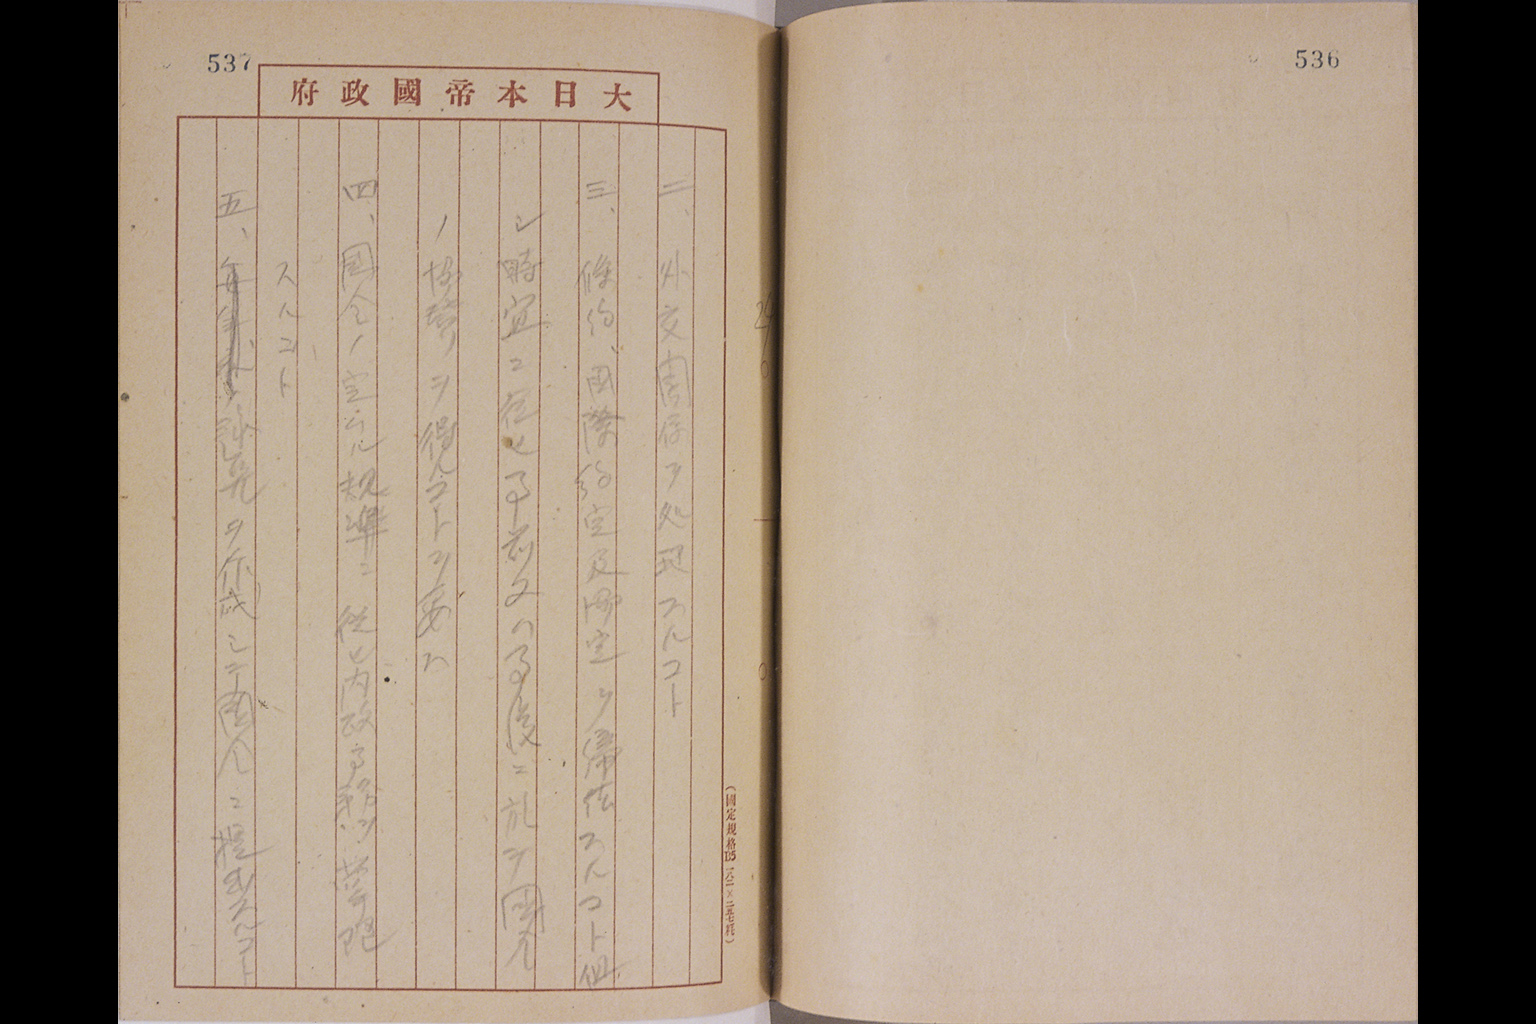 536
537
大日本帝國政府
二、外交関係ヲ処理スルコト
三、條約、国際約定及協定ヲ締結スルコト但
シ時宜ニ従ヒ事前又ハ事後ニ於テ国会
ノ協賛ヲ得ルコトヲ要ス
四、国会ノ定ムル規準ニ従ヒ内政事務ヲ掌理
スルコト
五、予算ヲ作成シテ国会ニ提出スルコト
(國定規格B5 一八二×二五七粍)